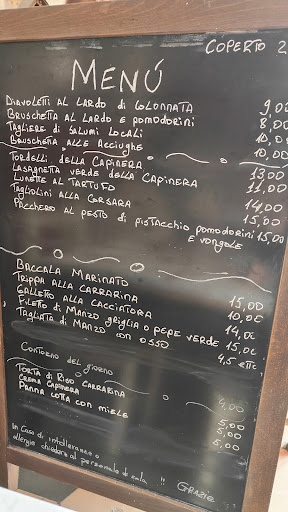 COPERTO 2
MENÚ
DIAVOLETTI AL LARDO di COLONNATA 9,00
BRUSCHETTA AL LARDO E POMODORINI 8,00
TAGLIERE di SALUMI LOCALI 10,00
BRUSCHETTA ALLE ACCIUGHE 10,00
TORDELLI DELLA CAPINERA 13,00
LASAGNETTA VERDE DELLA CAPINERA 11,00
LUNETTE AL TARTUFO 14,00
TAGLIOLINI ALLA CORSARA 15,00
PACCHERO AL PESTO di PISTACCHIO POMODORINI 15,00
E VONGOLE
BACCALA MARINATO 15,00
TRIPPA ALLA CARRARINA 10,00
GALLETTO ALLA CACCIATORA 14,00
FILETTO di MANZO GRIGLIA O PEPE VERDE 15,00
TAGLIATA di MANZO CON OSSO 4,5 ETTO
CONTORNO del giorno 4,00
TORTA di RISO CARRARINA 5,00
CREMA CAPINERA 5,00
PANNA COTTA CON MIELE 5,00
In Caso di intolleranze o
allergie chiedere al personale di sala !!
GRAZIE